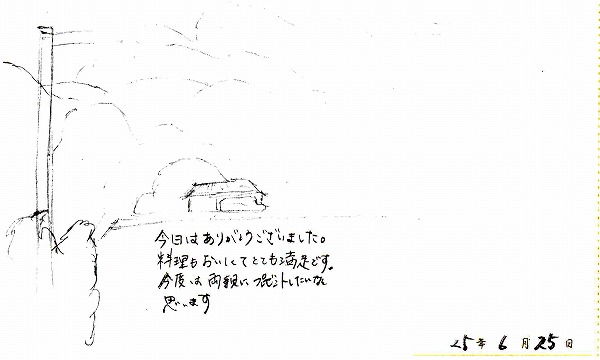 今日はありがとうございました。
料理もおいしくてとても満足です。
今度は両親にプレゼントしたいなと
思います
25年6月25日